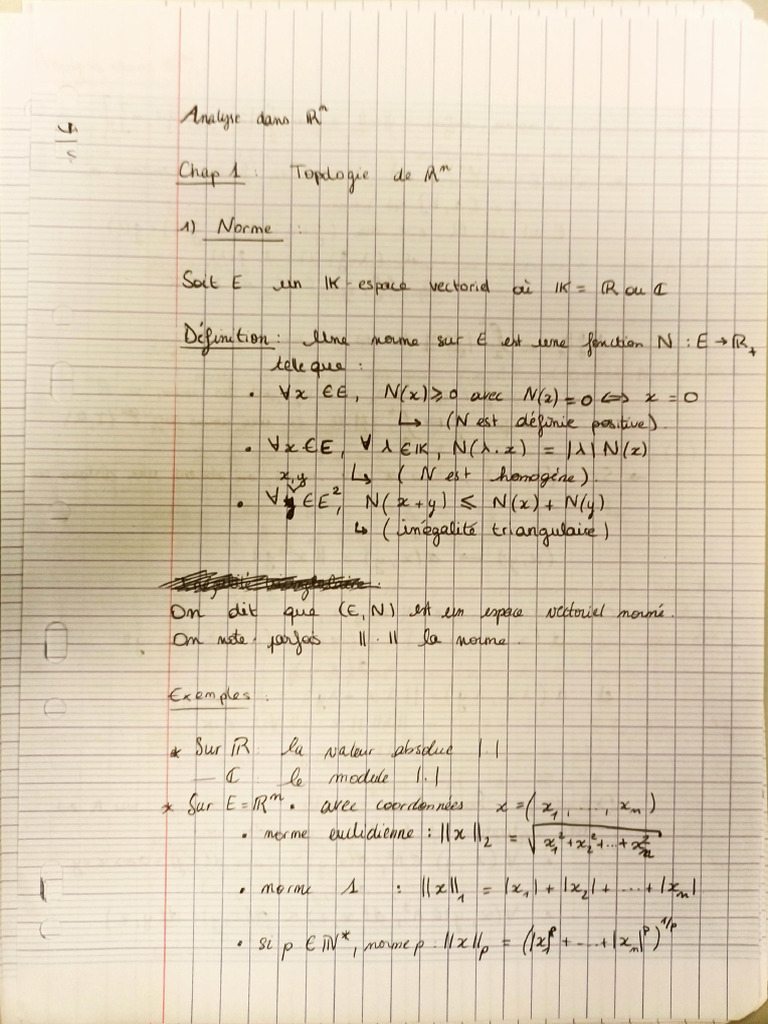 Analyse dans ℝⁿ
Chap 1 : Topologie de ℝⁿ
1) Norme :
Soit E un 𝕂-espace vectoriel où 𝕂 = ℝ ou ℂ
Définition : Une norme sur E est une fonction N : E → ℝ₊
telle que :
• ∀x ∈ E, N(x) ⩾ 0 avec N(x) = 0 ⇔ x = 0
↳ (N est définie positive).
• ∀x ∈ E, ∀λ ∈ 𝕂, N(λ.x) = |λ| N(x)
↳ (N est homogène).
• ∀ x,y ∈ E², N(x+y) ⩽ N(x) + N(y)
↳ (inégalité triangulaire)
On dit que (E,N) est un espace vectoriel normé.
On note parfois ||·|| la norme.
Exemples :
* Sur ℝ : la valeur absolue |.|
— ℂ : le module |.|
* Sur E = ℝⁿ. avec coordonnées x = (x₁, ..., xₙ)
• norme euclidienne : ||x||₂ = √(x₁² + x₂² + ... + xₙ²)
• norme 1 : ||x||₁ = |x₁| + |x₂| + ... + |xₙ|
• si p ∈ ℕ*, norme p. ||x||ₚ = (|x₁|ᵖ + ... + |xₙ|ᵖ)^{1/p}